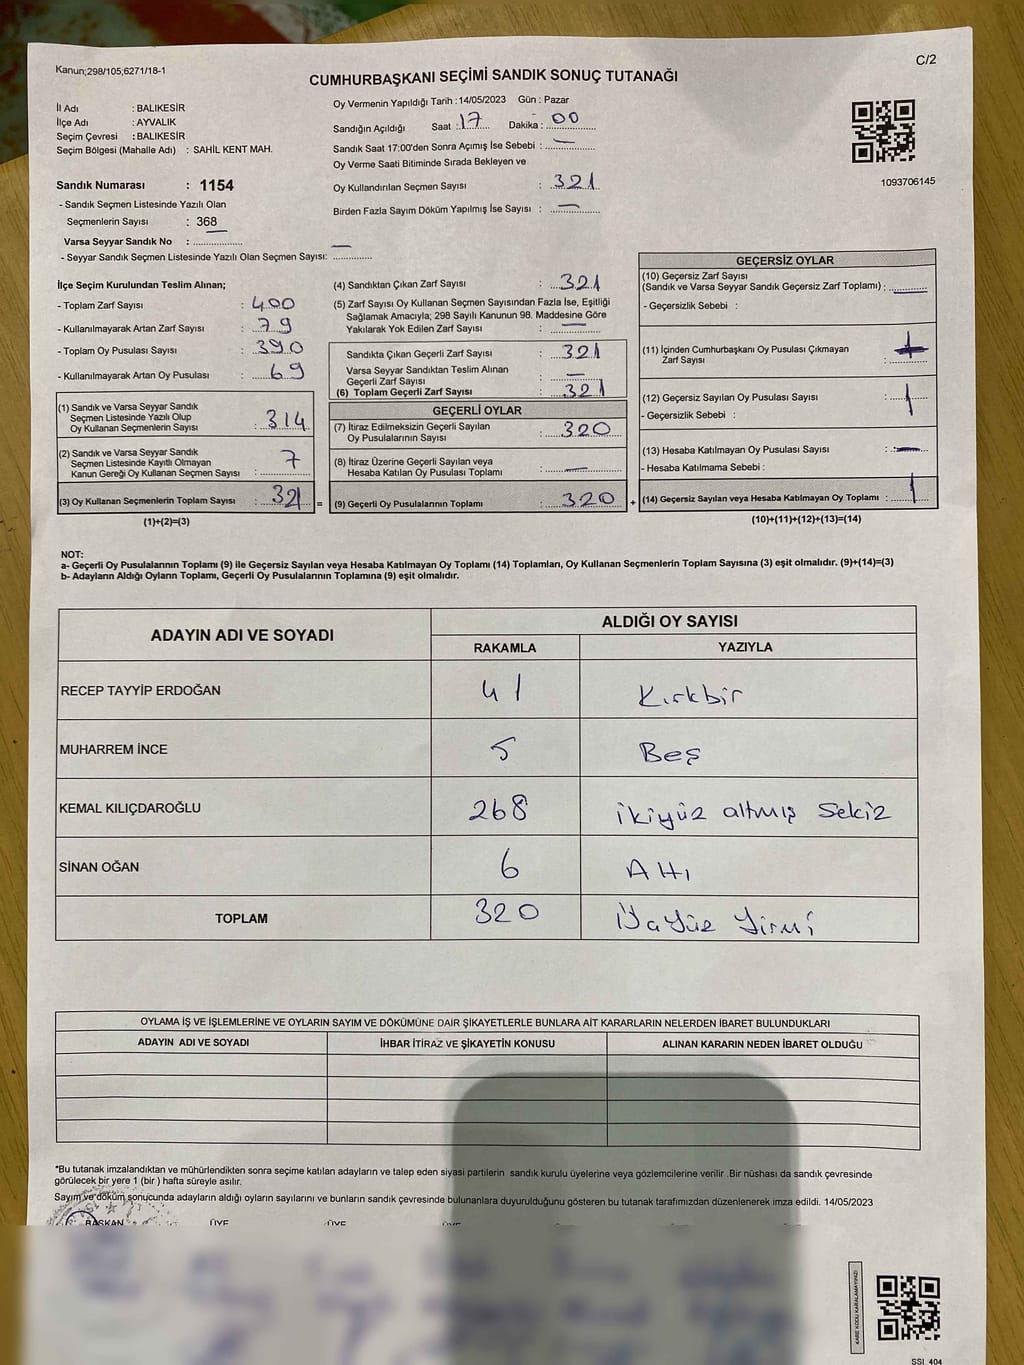 Kanun;298/105;6271/18-1
C/2
CUMHURBAŞKANI SEÇİMİ SANDIK SONUÇ TUTANAĞI
İl Adı : BALIKESİR
İlçe Adı : AYVALIK
Seçim Çevresi : BALIKESİR
Seçim Bölgesi (Mahalle Adı) : SAHİL KENT MAH.
Sandık Numarası : 1154
- Sandık Seçmen Listesinde Yazılı Olan
Seçmenlerin Sayısı : 368
Varsa Seyyar Sandık No : ...............
- Seyyar Sandık Seçmen Listesinde Yazılı Olan Seçmen Sayısı: ............ —
Oy Vermenin Yapıldığı Tarih : 14/05/2023 Gün : Pazar
Sandığın Açıldığı Saat : 17 Dakika : 00
Sandık Saat 17:00'den Sonra Açımış İse Sebebi : —
Oy Verme Saati Bitiminde Sırada Bekleyen ve
Oy Kullandırılan Seçmen Sayısı : 321
Birden Fazla Sayım Döküm Yapılmış İse Sayısı : —
1093706145
İlçe Seçim Kurulundan Teslim Alınan;
- Toplam Zarf Sayısı : 400
- Kullanılmayarak Artan Zarf Sayısı : 79
- Toplam Oy Pusulası Sayısı : 390
- Kullanılmayarak Artan Oy Pusulası : 69
(1) Sandık ve Varsa Seyyar Sandık
Seçmen Listesinde Yazılı Olup
Oy Kullanan Seçmenlerin Sayısı : 314
(2) Sandık ve Varsa Seyyar Sandık
Seçmen Listesinde Kayıtlı Olmayan
Kanun Gereği Oy Kullanan Seçmen Sayısı : 7
(3) Oy Kullanan Seçmenlerin Toplam Sayısı : 321 =
(1)+(2)=(3)
(4) Sandıktan Çıkan Zarf Sayısı : 321
(5) Zarf Sayısı Oy Kullanan Seçmen Sayısından Fazla İse, Eşitliği
Sağlamak Amacıyla; 298 Sayılı Kanunun 98. Maddesine Göre
Yakılarak Yok Edilen Zarf Sayısı : —
Sandıkta Çıkan Geçerli Zarf Sayısı : 321
Varsa Seyyar Sandıktan Teslim Alınan
Geçerli Zarf Sayısı : —
(6) Toplam Geçerli Zarf Sayısı : 321
GEÇERLİ OYLAR
(7) İtiraz Edilmeksizin Geçerli Sayılan
Oy Pusulalarının Sayısı : 320
(8) İtiraz Üzerine Geçerli Sayılan veya
Hesaba Katılan Oy Pusulası Toplamı : —
(9) Geçerli Oy Pusulalarının Toplamı : 320 +
GEÇERSİZ OYLAR
(10) Geçersiz Zarf Sayısı
(Sandık ve Varsa Seyyar Sandık Geçersiz Zarf Toplamı) : —
- Geçersizlik Sebebi :
(11) İçinden Cumhurbaşkanı Oy Pusulası Çıkmayan
Zarf Sayısı :
(12) Geçersiz Sayılan Oy Pusulası Sayısı : 1
- Geçersizlik Sebebi :
(13) Hesaba Katılmayan Oy Pusulası Sayısı : —
- Hesaba Katılmama Sebebi :
(14) Geçersiz Sayılan veya Hesaba Katılmayan Oy Toplamı : 1
(10)+(11)+(12)+(13)=(14)
NOT:
a- Geçerli Oy Pusulalarının Toplamı (9) ile Geçersiz Sayılan veya Hesaba Katılmayan Oy Toplamı (14) Toplamları, Oy Kullanan Seçmenlerin Toplam Sayısına (3) eşit olmalıdır. (9)+(14)=(3)
b- Adayların Aldığı Oyların Toplamı, Geçerli Oy Pusulalarının Toplamına (9) eşit olmalıdır.
ADAYIN ADI VE SOYADI ALDIĞI OY SAYISI
RAKAMLA YAZIYLA
RECEP TAYYİP ERDOĞAN 41 Kırkbir
MUHARREM İNCE 5 Beş
KEMAL KILIÇDAROĞLU 268 ikiyüz altmış sekiz
SİNAN OĞAN 6 Altı
TOPLAM 320 yirmi
OYLAMA İŞ VE İŞLEMLERİNE VE OYLARIN SAYIM VE DÖKÜMÜNE DAİR ŞİKAYETLERLE BUNLARA AİT KARARLARIN NELERDEN İBARET BULUNDUKLARI
ADAYIN ADI VE SOYADI İHBAR İTİRAZ VE ŞİKAYETİN KONUSU ALINAN KARARIN NEDEN İBARET OLDUĞU
*Bu tutanak imzalandıktan ve mühürlendikten sonra seçime katılan adayların ve talep eden siyasi partilerin sandık kurulu üyelerine veya gözlemcilerine verilir .Bir nüshası da sandık çevresinde
görülecek bir yere 1 (bir ) hafta süreyle asılır.
Sayım ve döküm sonucunda adayların aldığı oyların sayılarını ve bunların sandık çevresinde bulunanlara duyurulduğunu gösteren bu tutanak tarafımızdan düzenlenerek imza edildi. 14/05/2023
BAŞKAN ÜYE ÜYE ÜYE
KARE KODU KARALAMAYINIZ!
SSI_404